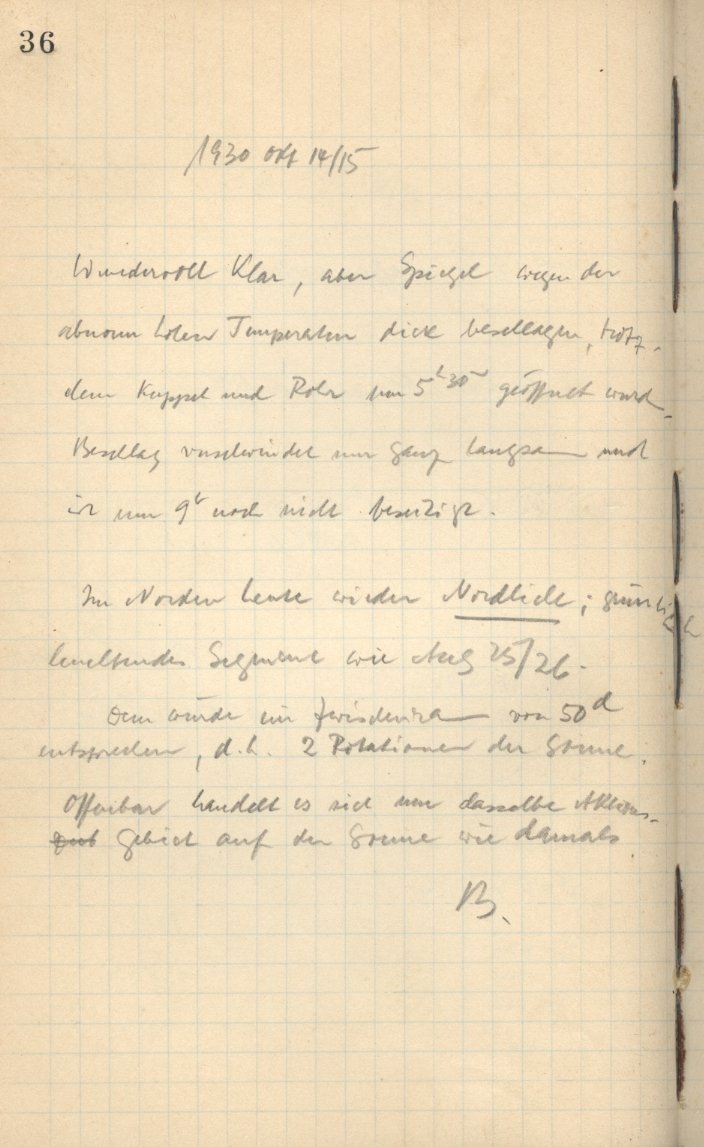 36
1930 Okt 14/15
Wundervoll klar, aber Spiegel wegen der
abnorm hohen Temperatur dick beschlagen, trotz-
dem Kuppel und Rohr um 5h30m geöffnet wurde.
Beschlag verschwindet nur ganz langsam und
ist um 9h noch nicht beseitigt.
Im Norden heute wieder Nordlicht; grünlich
leuchtendes Segment wie Aug 25/26.
Dem würde ein Zwischenraum von 50d
entsprechen, d.h. 2 Rotationen der Sonne.
Offenbar handelt es sich um dasselbe Aktions-
gebiet auf der Sonne wie damals
B.